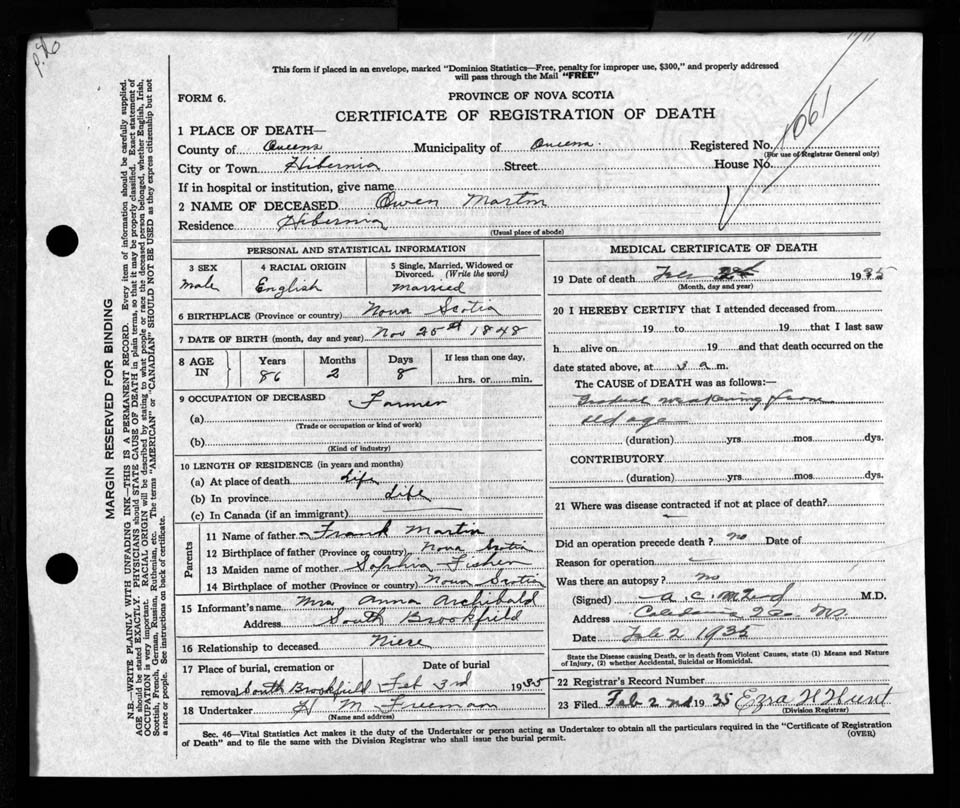 P.26
This form if placed in an envelope, marked "Dominion Statistics—Free, penalty for improper use, $300," and properly addressed
will pass through the Mail "FREE"
FORM 6.
PROVINCE OF NOVA SCOTIA
CERTIFICATE OF REGISTRATION OF DEATH
1061
1 PLACE OF DEATH—
County of Queens Municipality of Queens. Registered No.
(For use of Registrar General only)
City or Town Hibernia Street House No.
If in hospital or institution, give name
2 NAME OF DECEASED Owen Martin
Residence Hibernia
(Usual place of abode)
PERSONAL AND STATISTICAL INFORMATION
3 SEX 4 RACIAL ORIGIN 5 Single, Married, Widowed or
Divorced. (Write the word)
Male English Married
6 BIRTHPLACE (Province or country) Nova Scotia
7 DATE OF BIRTH (month, day and year) Nov 25th 1848
8 AGE IN Years Months Days If less than one day,
86 2 8 hrs. or min.
9 OCCUPATION OF DECEASED Farmer
(a)
(Trade or occupation or kind of work)
(b)
(Kind of industry)
10 LENGTH OF RESIDENCE (in years and months)
(a) At place of death Life
(b) In province Life
(c) In Canada (if an immigrant)
Parents
11 Name of father Frank Martin
12 Birthplace of father (Province or country) Nova Scotia
13 Maiden name of mother Sophia Fisher
14 Birthplace of mother (Province or country) Nova Scotia
15 Informant's name Mrs Anna Archibald
Address South Brookfield
16 Relationship to deceased Niese
17 Place of burial, cremation or Date of burial
removal South Brookfield Feb 3rd 1935
18 Undertaker H M Freeman
(Name and address)
MEDICAL CERTIFICATE OF DEATH
19 Date of death Feb 1935
(Month, day and year)
20 I HEREBY CERTIFY that I attended deceased from
19 to 19 that I last saw
h alive on 19 and that death occurred on the
date stated above, at 3 a m.
The CAUSE of DEATH was as follows:—
Gradual weakening from
old age
(duration) yrs mos dys.
CONTRIBUTORY
(duration) yrs mos dys.
21 Where was disease contracted if not at place of death?
Did an operation precede death? no Date of
Reason for operation
Was there an autopsy? no
(Signed) A. C. M.D.
Address
Date Feb 2 1935
State the Disease causing Death, or in death from Violent Causes, state (1) Means and Nature
of Injury, (2) whether Accidental, Suicidal or Homicidal.
22 Registrar's Record Number
23 Filed Feb 2nd 1935 Ezra H Hunt
(Division Registrar)
Sec. 46—Vital Statistics Act makes it the duty of the Undertaker or person acting as Undertaker to obtain all the particulars required in the "Certificate of Registration
of Death" and to file the same with the Division Registrar who shall issue the burial permit.
(OVER)
MARGIN RESERVED FOR BINDING
N.B.—WRITE PLAINLY WITH UNFADING INK—THIS IS A PERMANENT RECORD. Every item of information should be carefully supplied.
AGE should be stated EXACTLY. PHYSICIANS should STATE CAUSE OF DEATH in plain terms, so that it may be properly classified. Exact statement of
OCCUPATION is very important. RACIAL ORIGIN will be described by stating to what people or race the deceased person belonged, whether English, Irish,
Scottish, French, German, Russian, Ruthenian, etc. The terms "AMERICAN" or "CANADIAN" SHOULD NOT BE USED as they express citizenship but not
a race or people. See instructions on back of certificate.